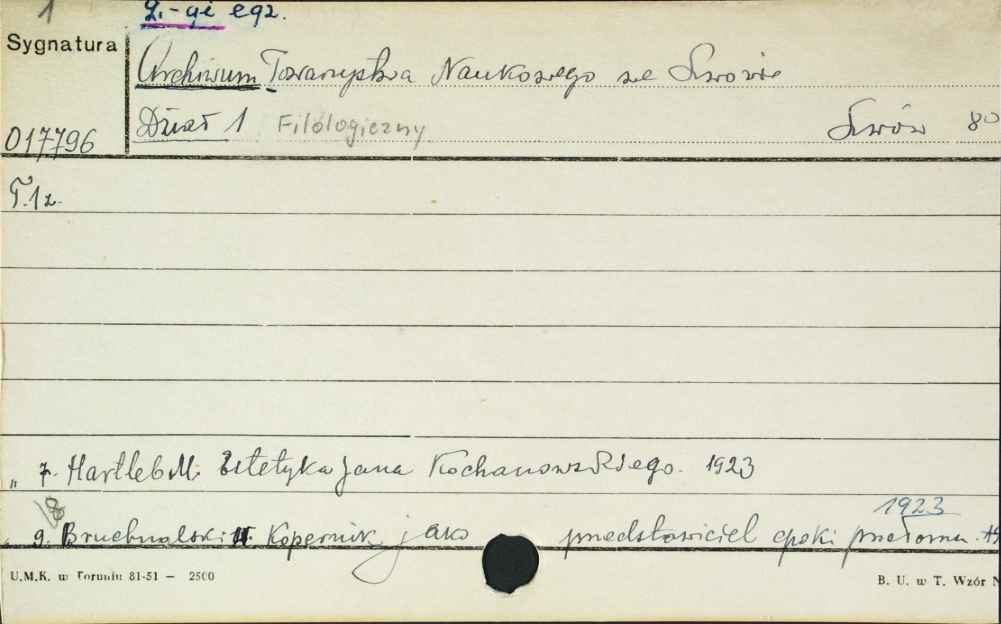 1 2.-gi egz.
Sygnatura
Archiwum Towarzystwa Naukowego we Lwowie
Dział 1 Filologiczny Lwów 8°
017796
T.1 z.
„ 7. Hartleb M. Estetyka Jana Kochanowskiego. 1923
8
1923
„ 9. Bruchnalski W. Kopernik jako przedstawiciel epoki przełomu.
U.M.K. w Toruniu 81-51 — 2500 B. U. w T. Wzór N